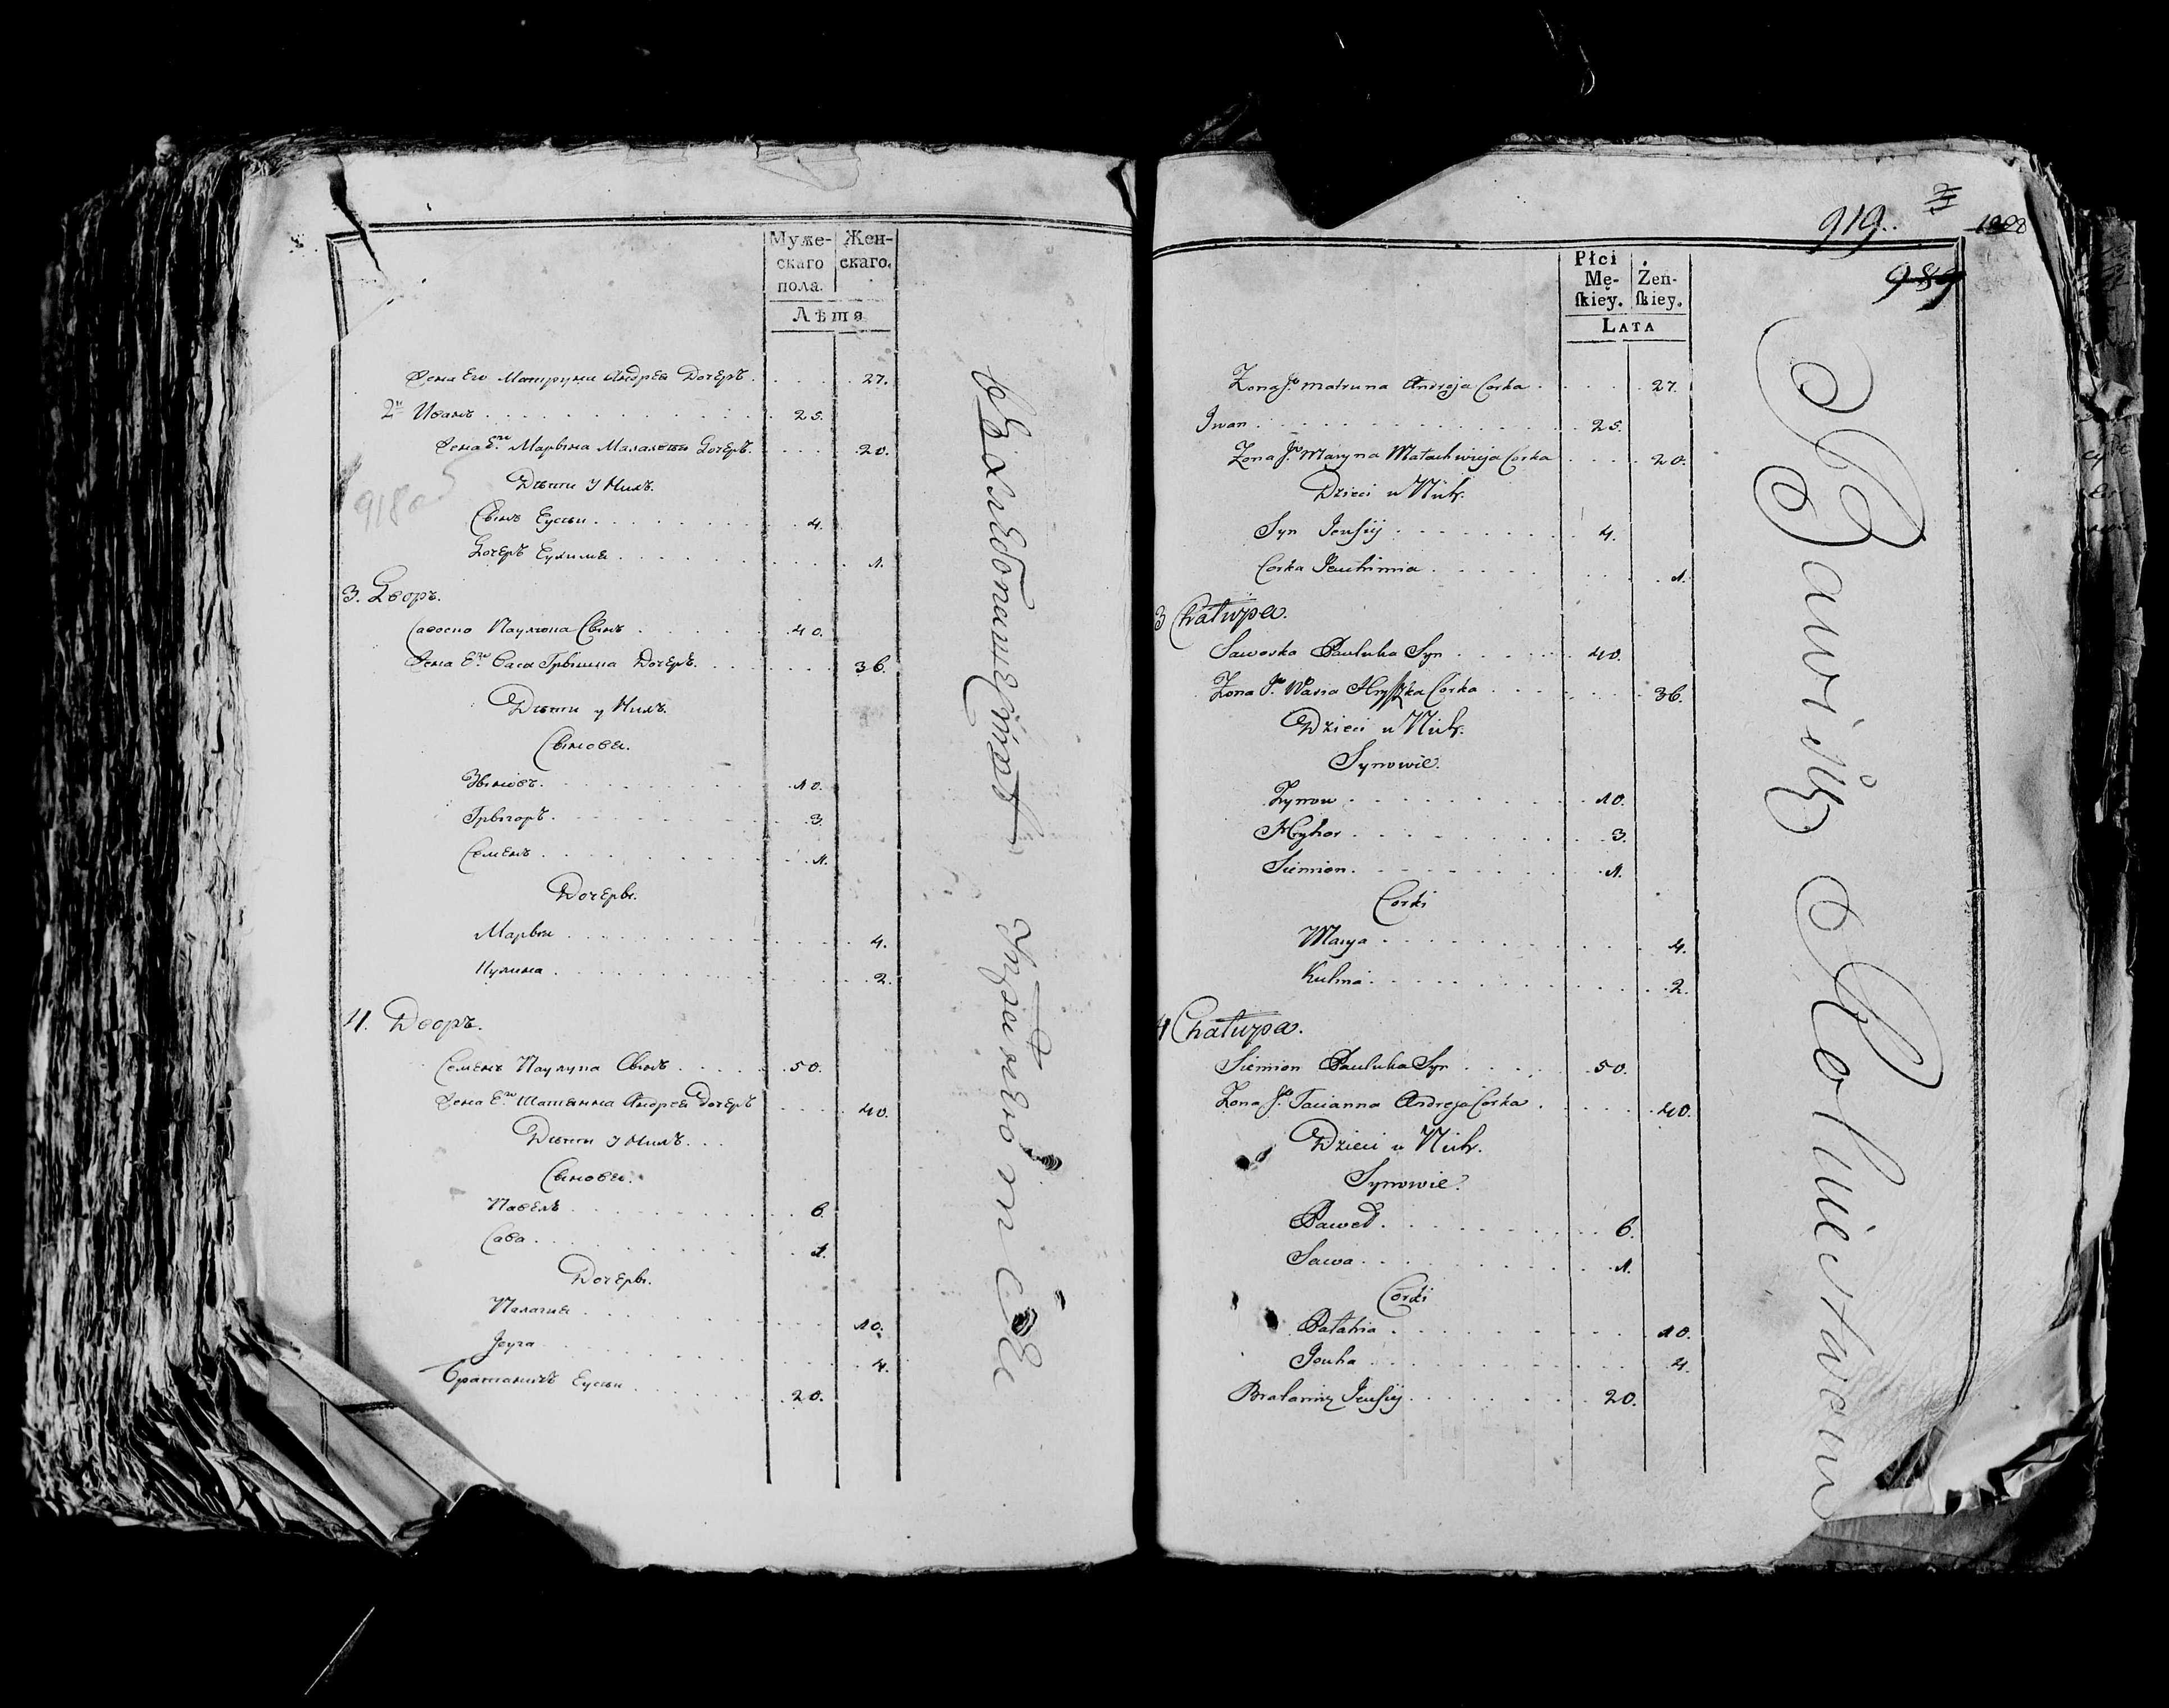 Муже-
скаго
пола.
Жен-
скаго.
Лѣта
Жена Его Матруна Андрея Дочеръ. 27.
2й Иванъ 25.
Жена Его Марына Малахвѣя Дочеръ. 20.
Дѣти у Нихъ.
Сынъ Еусѣи 4.
Дочеръ Еухимя 1.
918 об
3. Дворъ.
Савоско Паулюка Сынъ 40.
Жена Его Васа Грышка Дочеръ. 36.
Дѣти у Нихъ.
Сынове.
Зѣновъ. 10.
Грыгоръ. 3.
Семенъ 1.
Дочеры.
Марыя 4.
Кулина 2.
4. Дворъ.
Семенъ Паулука Сынъ 50.
Жена Его Татянна Андрея Дочеръ 40.
Дѣти у Нихъ.
Сынове.
Павелъ 6.
Сава 1.
Дочеры.
Палагия 10.
Јеуга 4.
Братаничъ Еусѣи 20.
919.
1028
989
Płci
Mę-
ſkiey.
Żeń-
ſkiey.
LATA
Zona Jo. Matruna Andreja Corka 27.
Iwan 25.
Zona Jo. Maryna Matachwieja Corka 20.
Dzieci u Nich.
Syn Jeusiy 4.
Corka Jeuchimia 1.
3 Chałupa.
Sawoska Pauluka Syn 40.
Zona Jo. Wasia Hryszka Corka 36.
Dzieci u Nich.
Synowie.
Zynow 10.
Hryhor 3.
Siemion. 1.
Corki
Marya 4.
Kulina 2.
4 Chałupa.
Siemion Pauluka Syn 50.
Zona Jo. Tacianna Andreja Corka 40.
Dzieci u Nich.
Synowie.
Paweł. 6.
Sawa 1.
Corki
Pałahia 10.
Jouha 4.
Bratanicz Jeusiy 20.